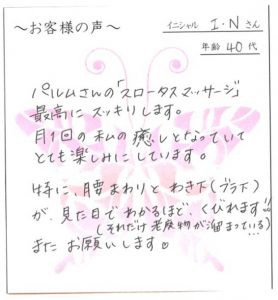 ～お客様の声～
イニシャル I・N さん
年齢 40代
パルムさんの「スロータスマッサージ」
最高に スッキリします。
月1回の 私の 癒しとなっていて
とても楽しみにしています。
特に、腰まわりと わき下(ブラ下)
が、見た目で わかるほど、くびれます!!
(それだけ老廃物が溜まっている…)
また お願いします♡